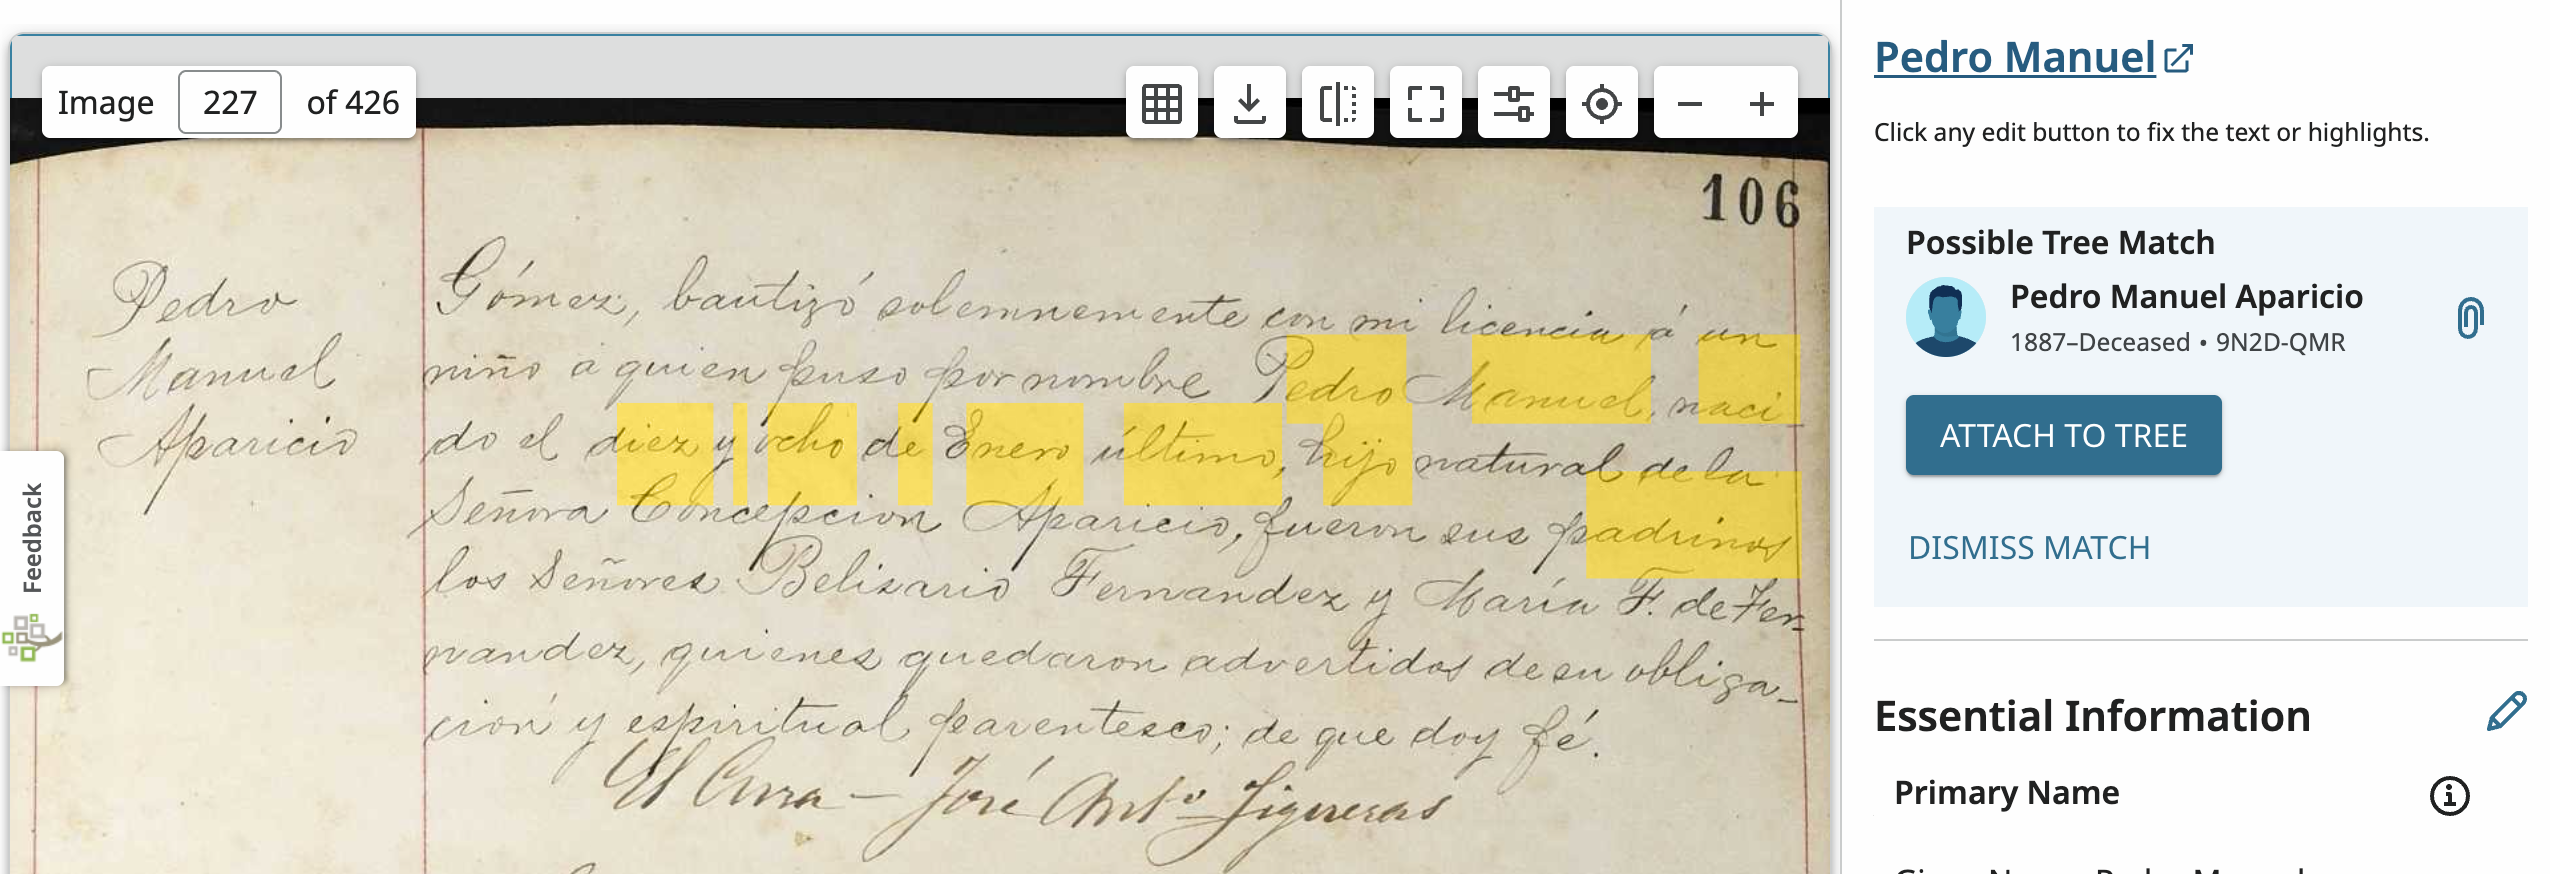 Image 227 of 426
106
Pedro
Manuel
Aparicio
Gómez, bautizó solemnemente con mi licencia á un
niño a quien puso por nombre Pedro Manuel, naci-
do el diez y ocho de Enero último, hijo natural de la
Señora Concepcion Aparicio, fueron sus padrinos
los Señores Belisario Fernandez y María F. de Fer-
nandez, quienes quedaron advertidos de su obliga-
ción y espiritual parentesco; de que doy fé.
El Cura — José Anto. Figueras
Feedback
Pedro Manuel
Click any edit button to fix the text or highlights.
Possible Tree Match
Pedro Manuel Aparicio
1887–Deceased • 9N2D-QMR
ATTACH TO TREE
DISMISS MATCH
Essential Information
Primary Name